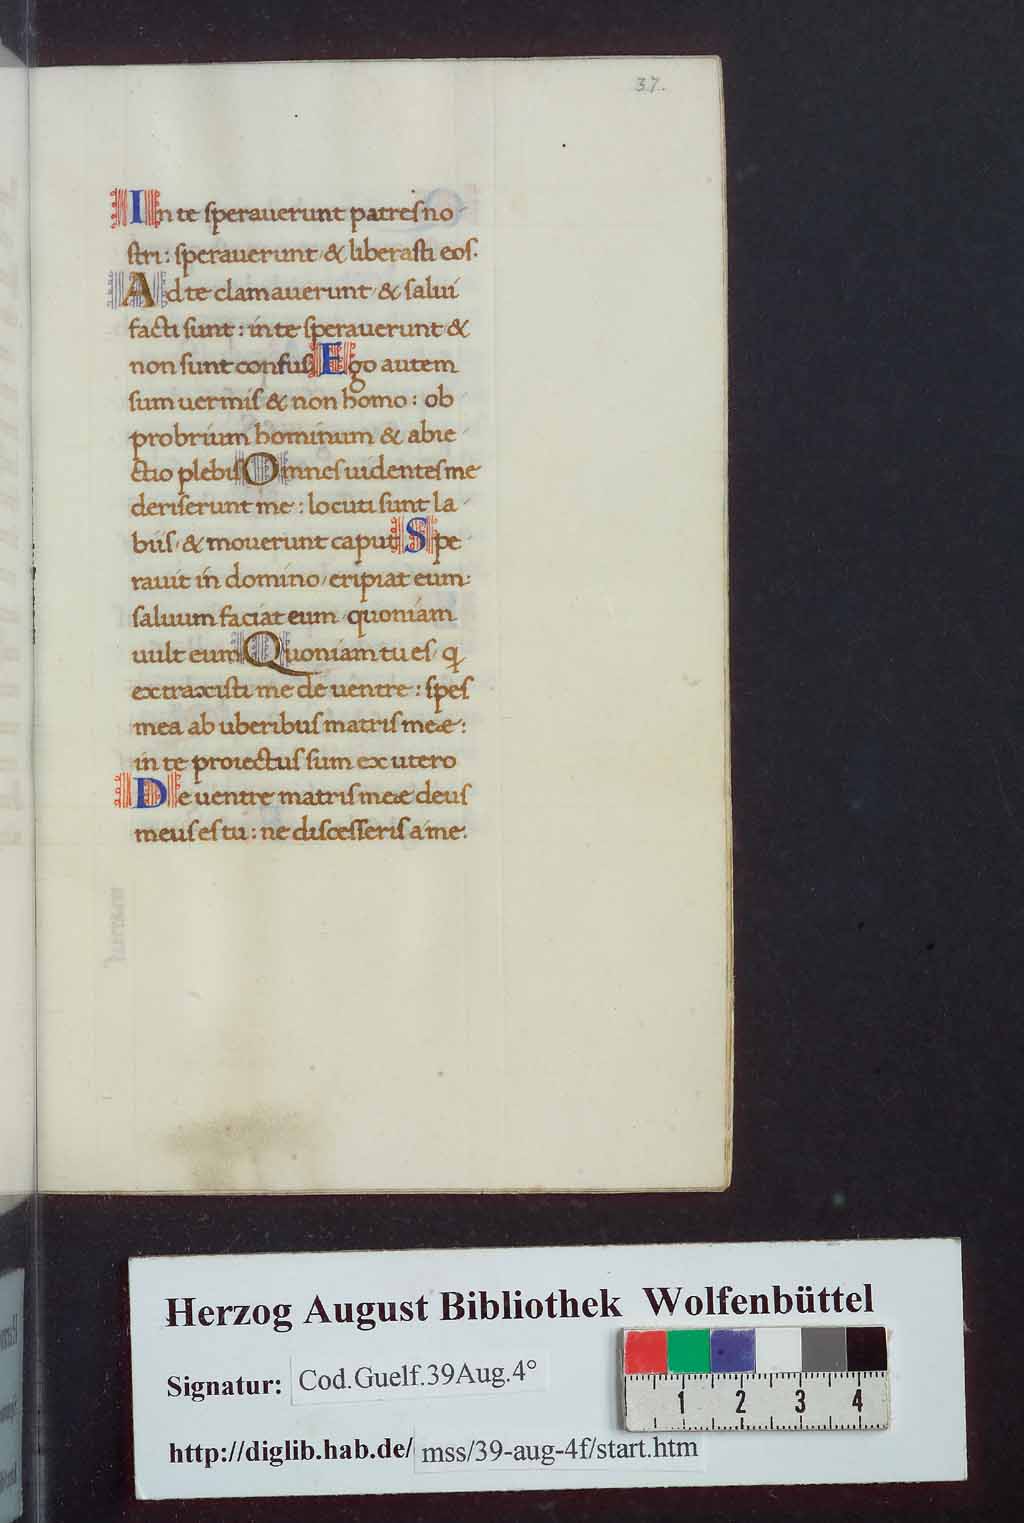 37.
In te sperauerunt patres no-
stri: sperauerunt & liberasti eos.
Ad te clamauerunt & salui
facti sunt: in te sperauerunt &
non sunt confusi Ego autem
sum uermis & non homo: ob
probrium hominum & abie-
ctio plebis Omnes uidentes me
deriserunt me: locuti sunt la-
biis, & mouerunt caput Spe
rauit in domino, eripiat eum:
saluum faciat eum, quoniam
uult eum Quoniam tu es, q
extraxisti me de uentre: spes
mea ab uberibus matris meæ:
in te proiectus sum ex utero
De uentre matris meæ deus
meus es tu: ne discesseris a me.
Herzog August Bibliothek Wolfenbüttel
Signatur: Cod.Guelf.39Aug.4°
1 2 3 4
http://diglib.hab.de/ mss/39-aug-4f/start.htm